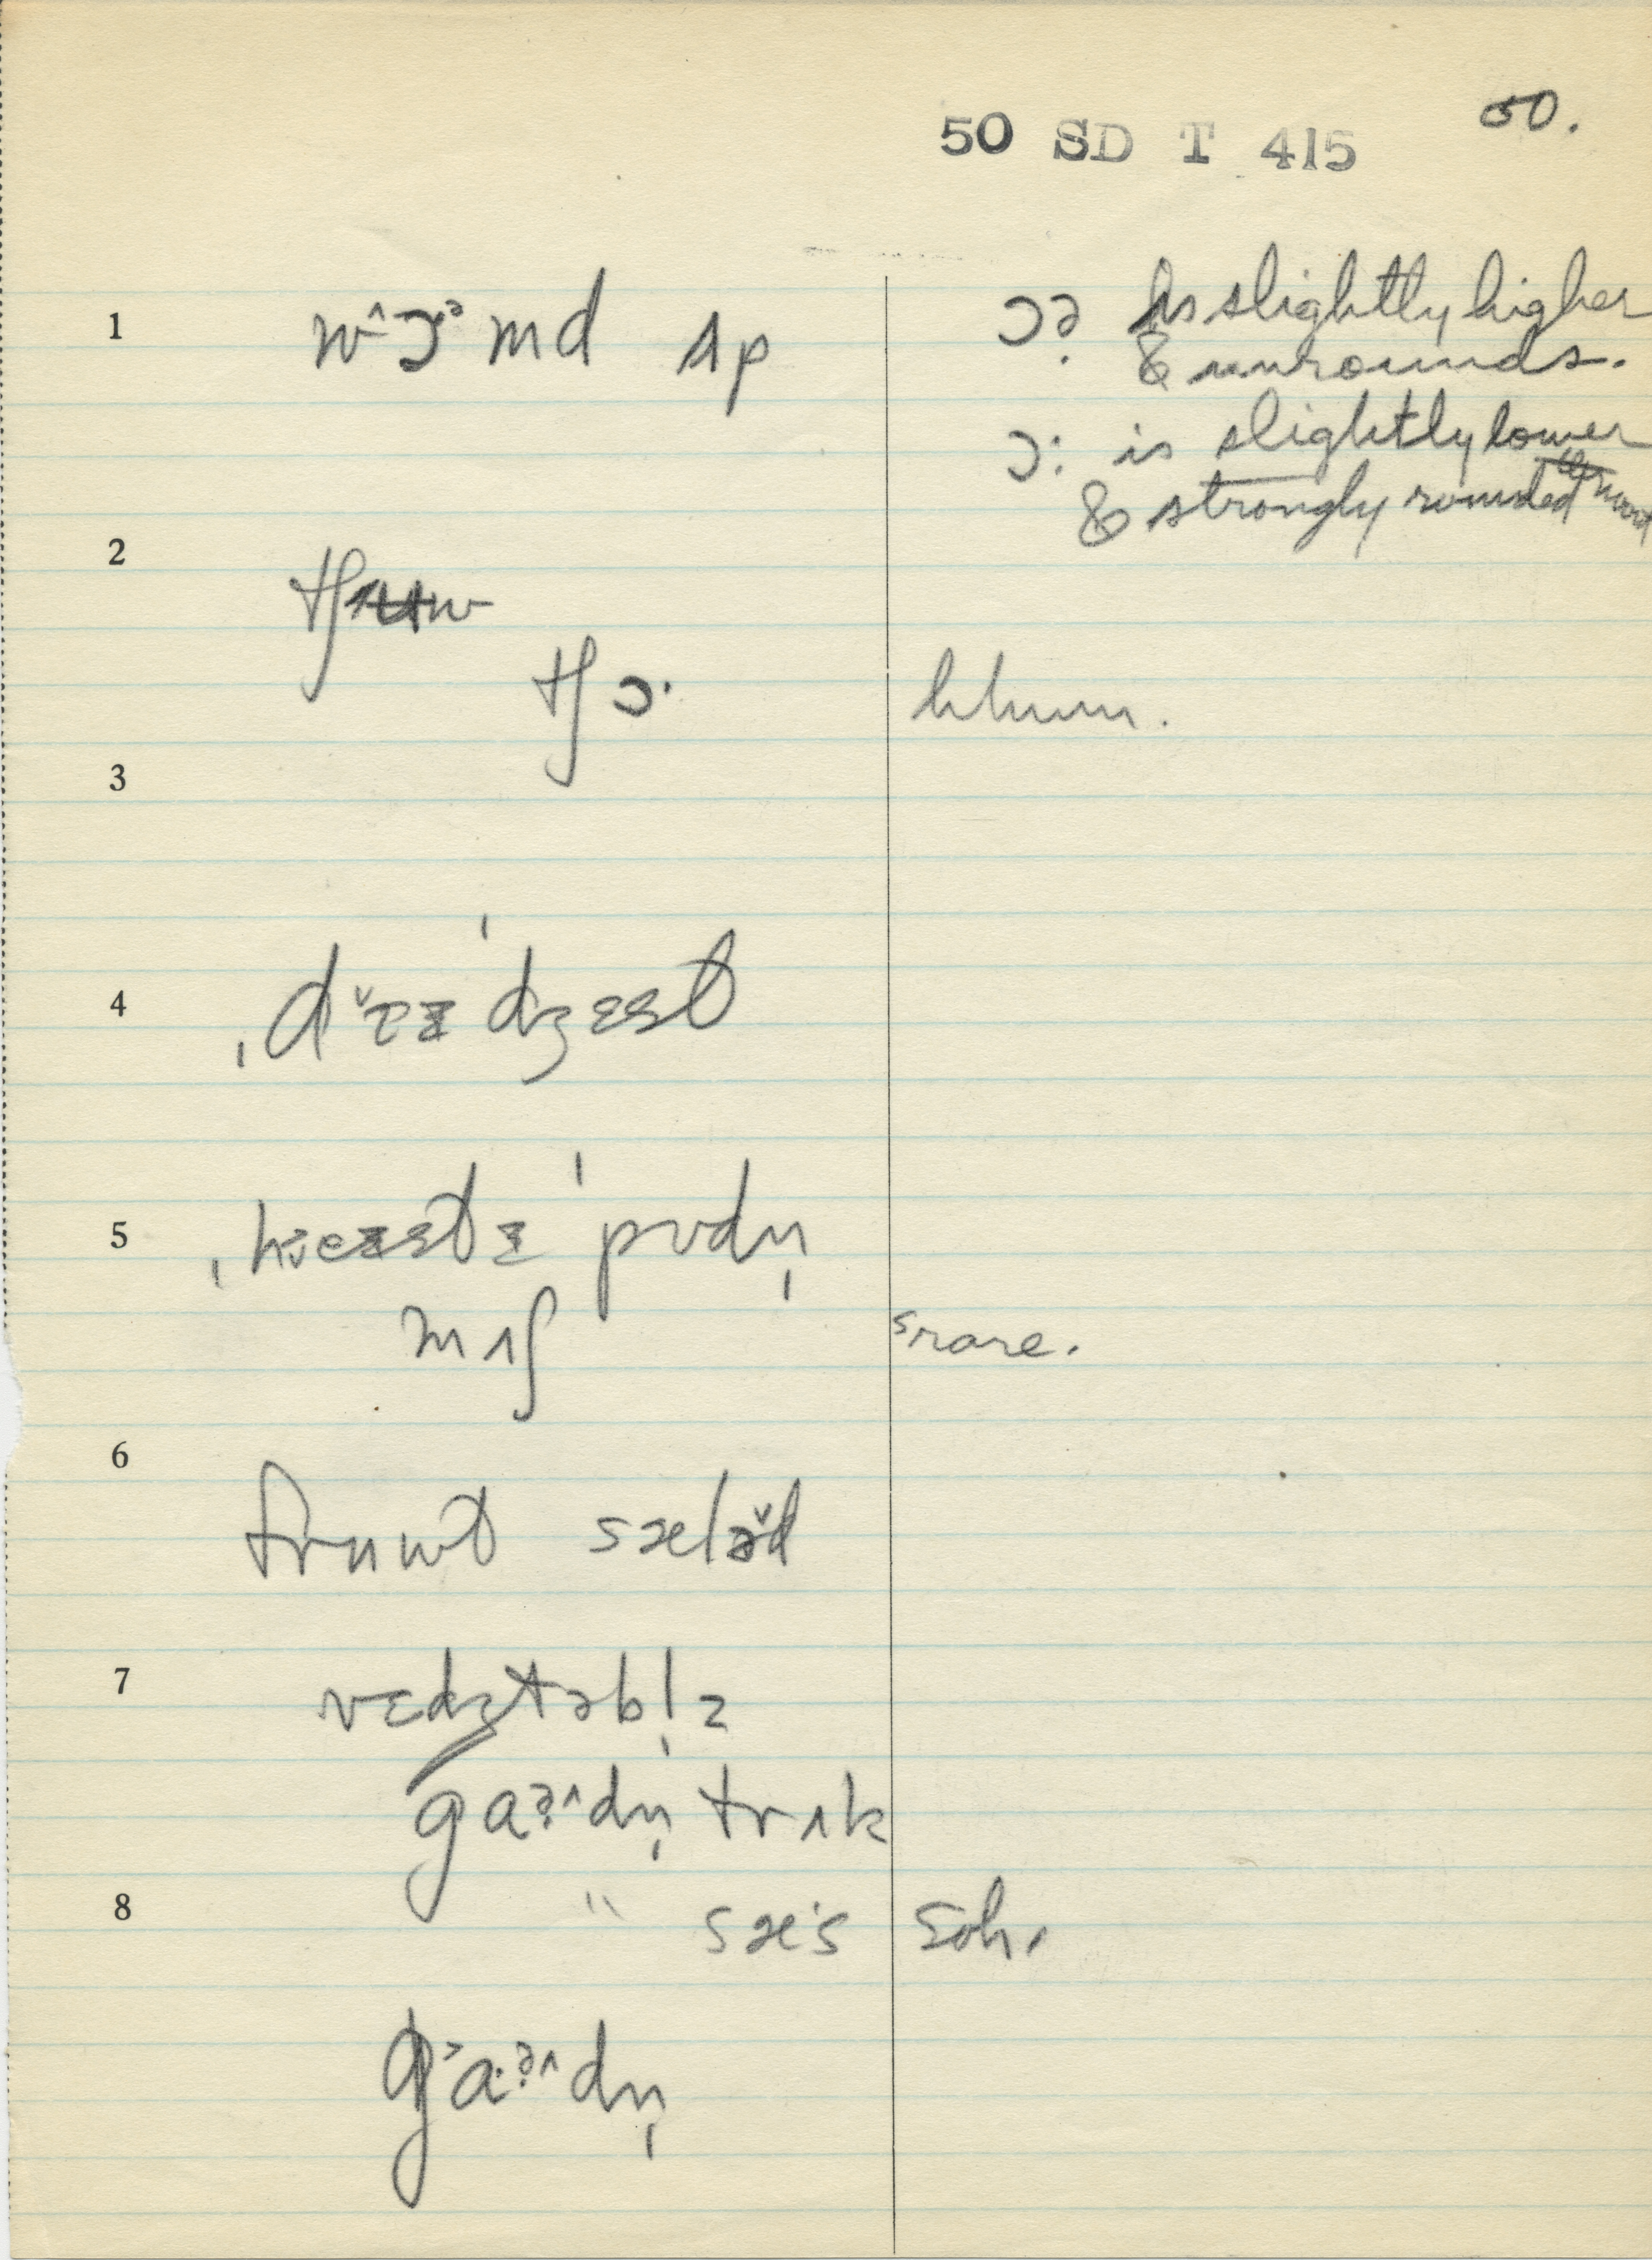 50.
50 SD T 415
1 w^ɔ·ᵊmd ʌp ɔə̣ is slightly higher
& unrounds.
ɔ: is slightly lower
& strongly rounded
2
tʃɔ· hhum.
3
4 ˌd˅ɪz ˈdʒest
5 ˈpʊdn̩
mʌʃ srare.
6 fruwt sæləd
7 vɛdʒtəbl̩z
gaə̣^dn̩ trʌk
8 " sæ·s soh.
g˃a·ə̣^dn̩